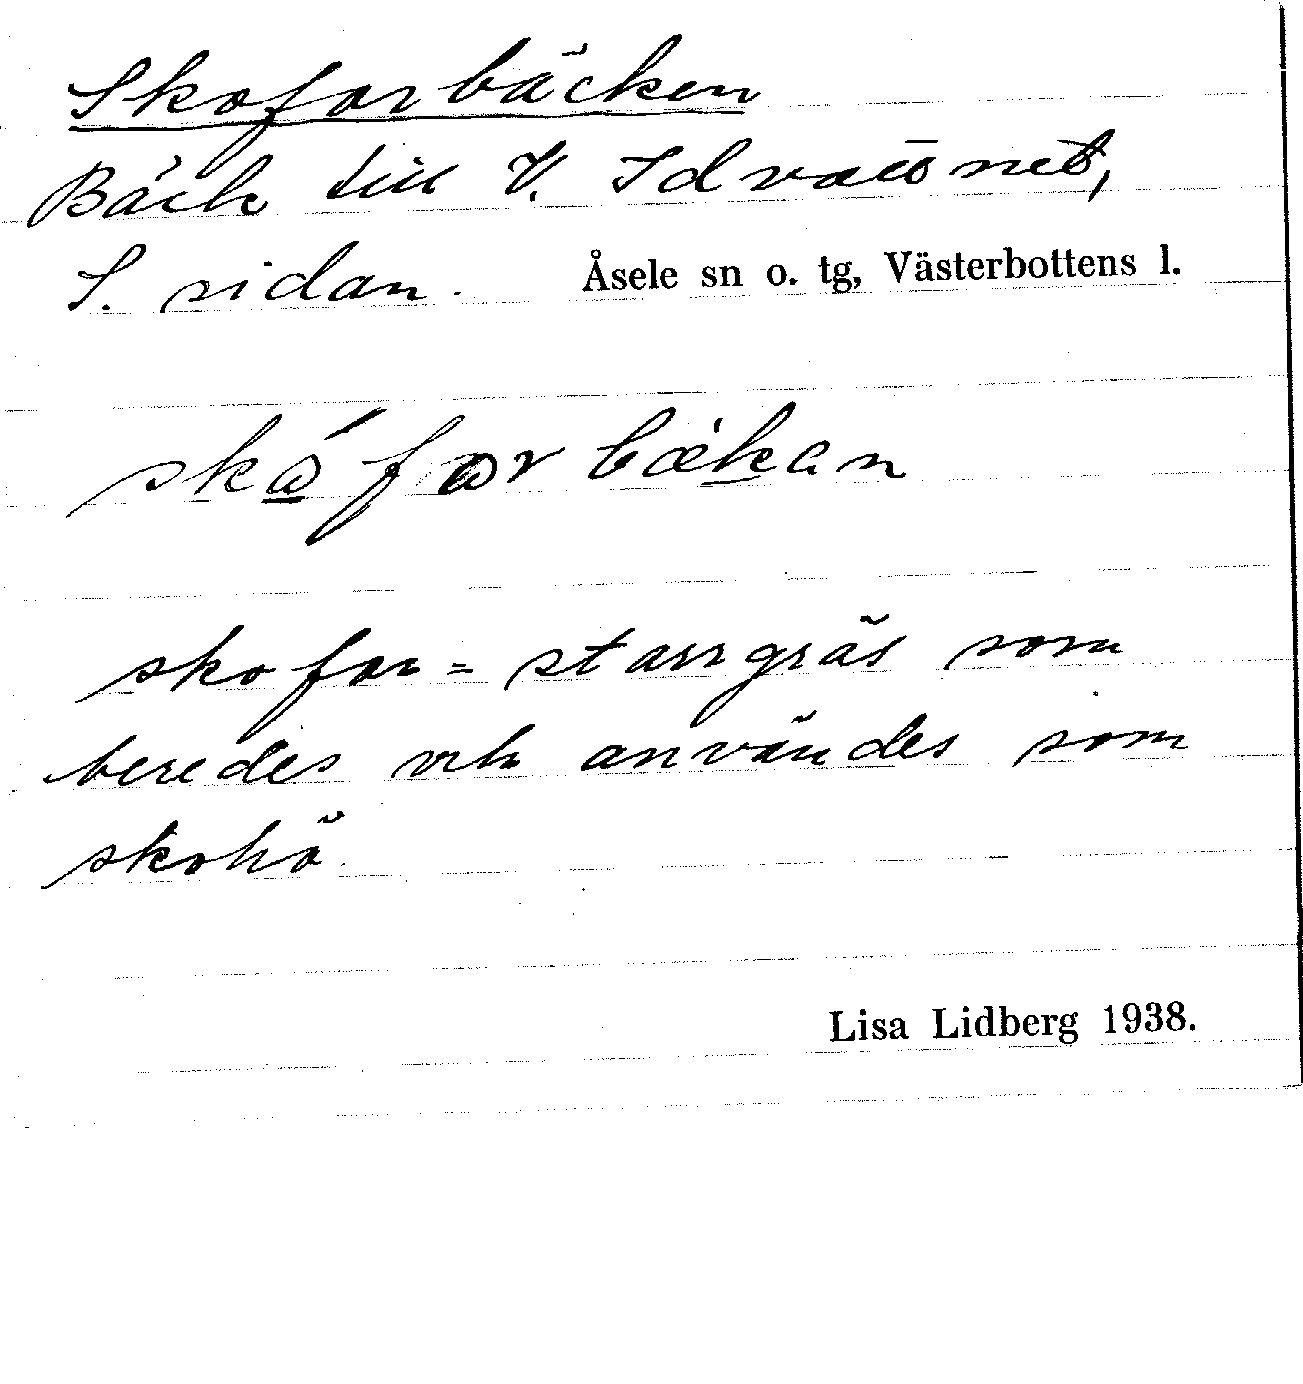 Skoforbäcken
Bäck till V. Idvattnet,
S. sidan. Åsele sn o. tg, Västerbottens l.
skofor = starrgräs som
beredes och användes som
skohö.
Lisa Lidberg 1938.